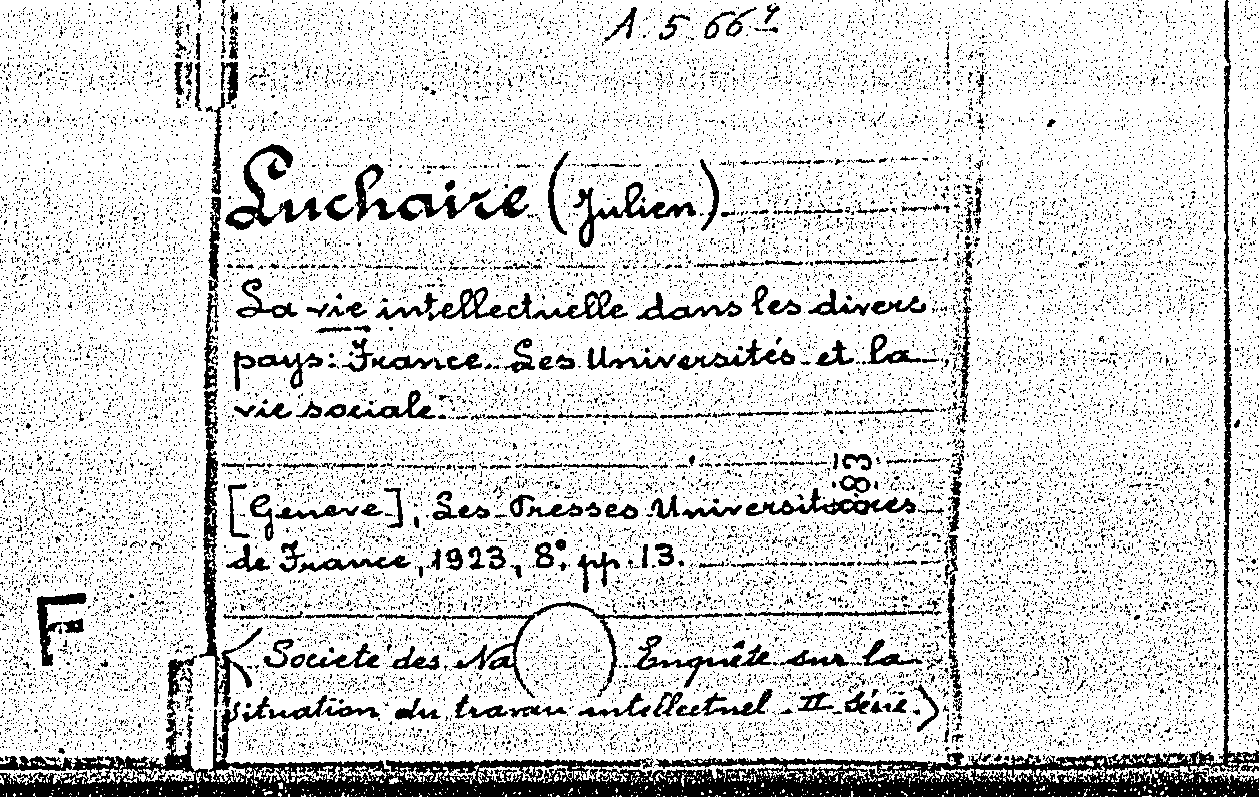 A. 5. 66⁴
Luchaire (Julien)
La vie intellectuelle dans les divers
pays: France. Les Universités et la
vie sociale.
83
[Geneve], Les Presses Universitaires
de France, 1923, 8º. pp. 13.
F
(Societé des Na Enquête sur la
situation du travau intellectuel. II Série.)